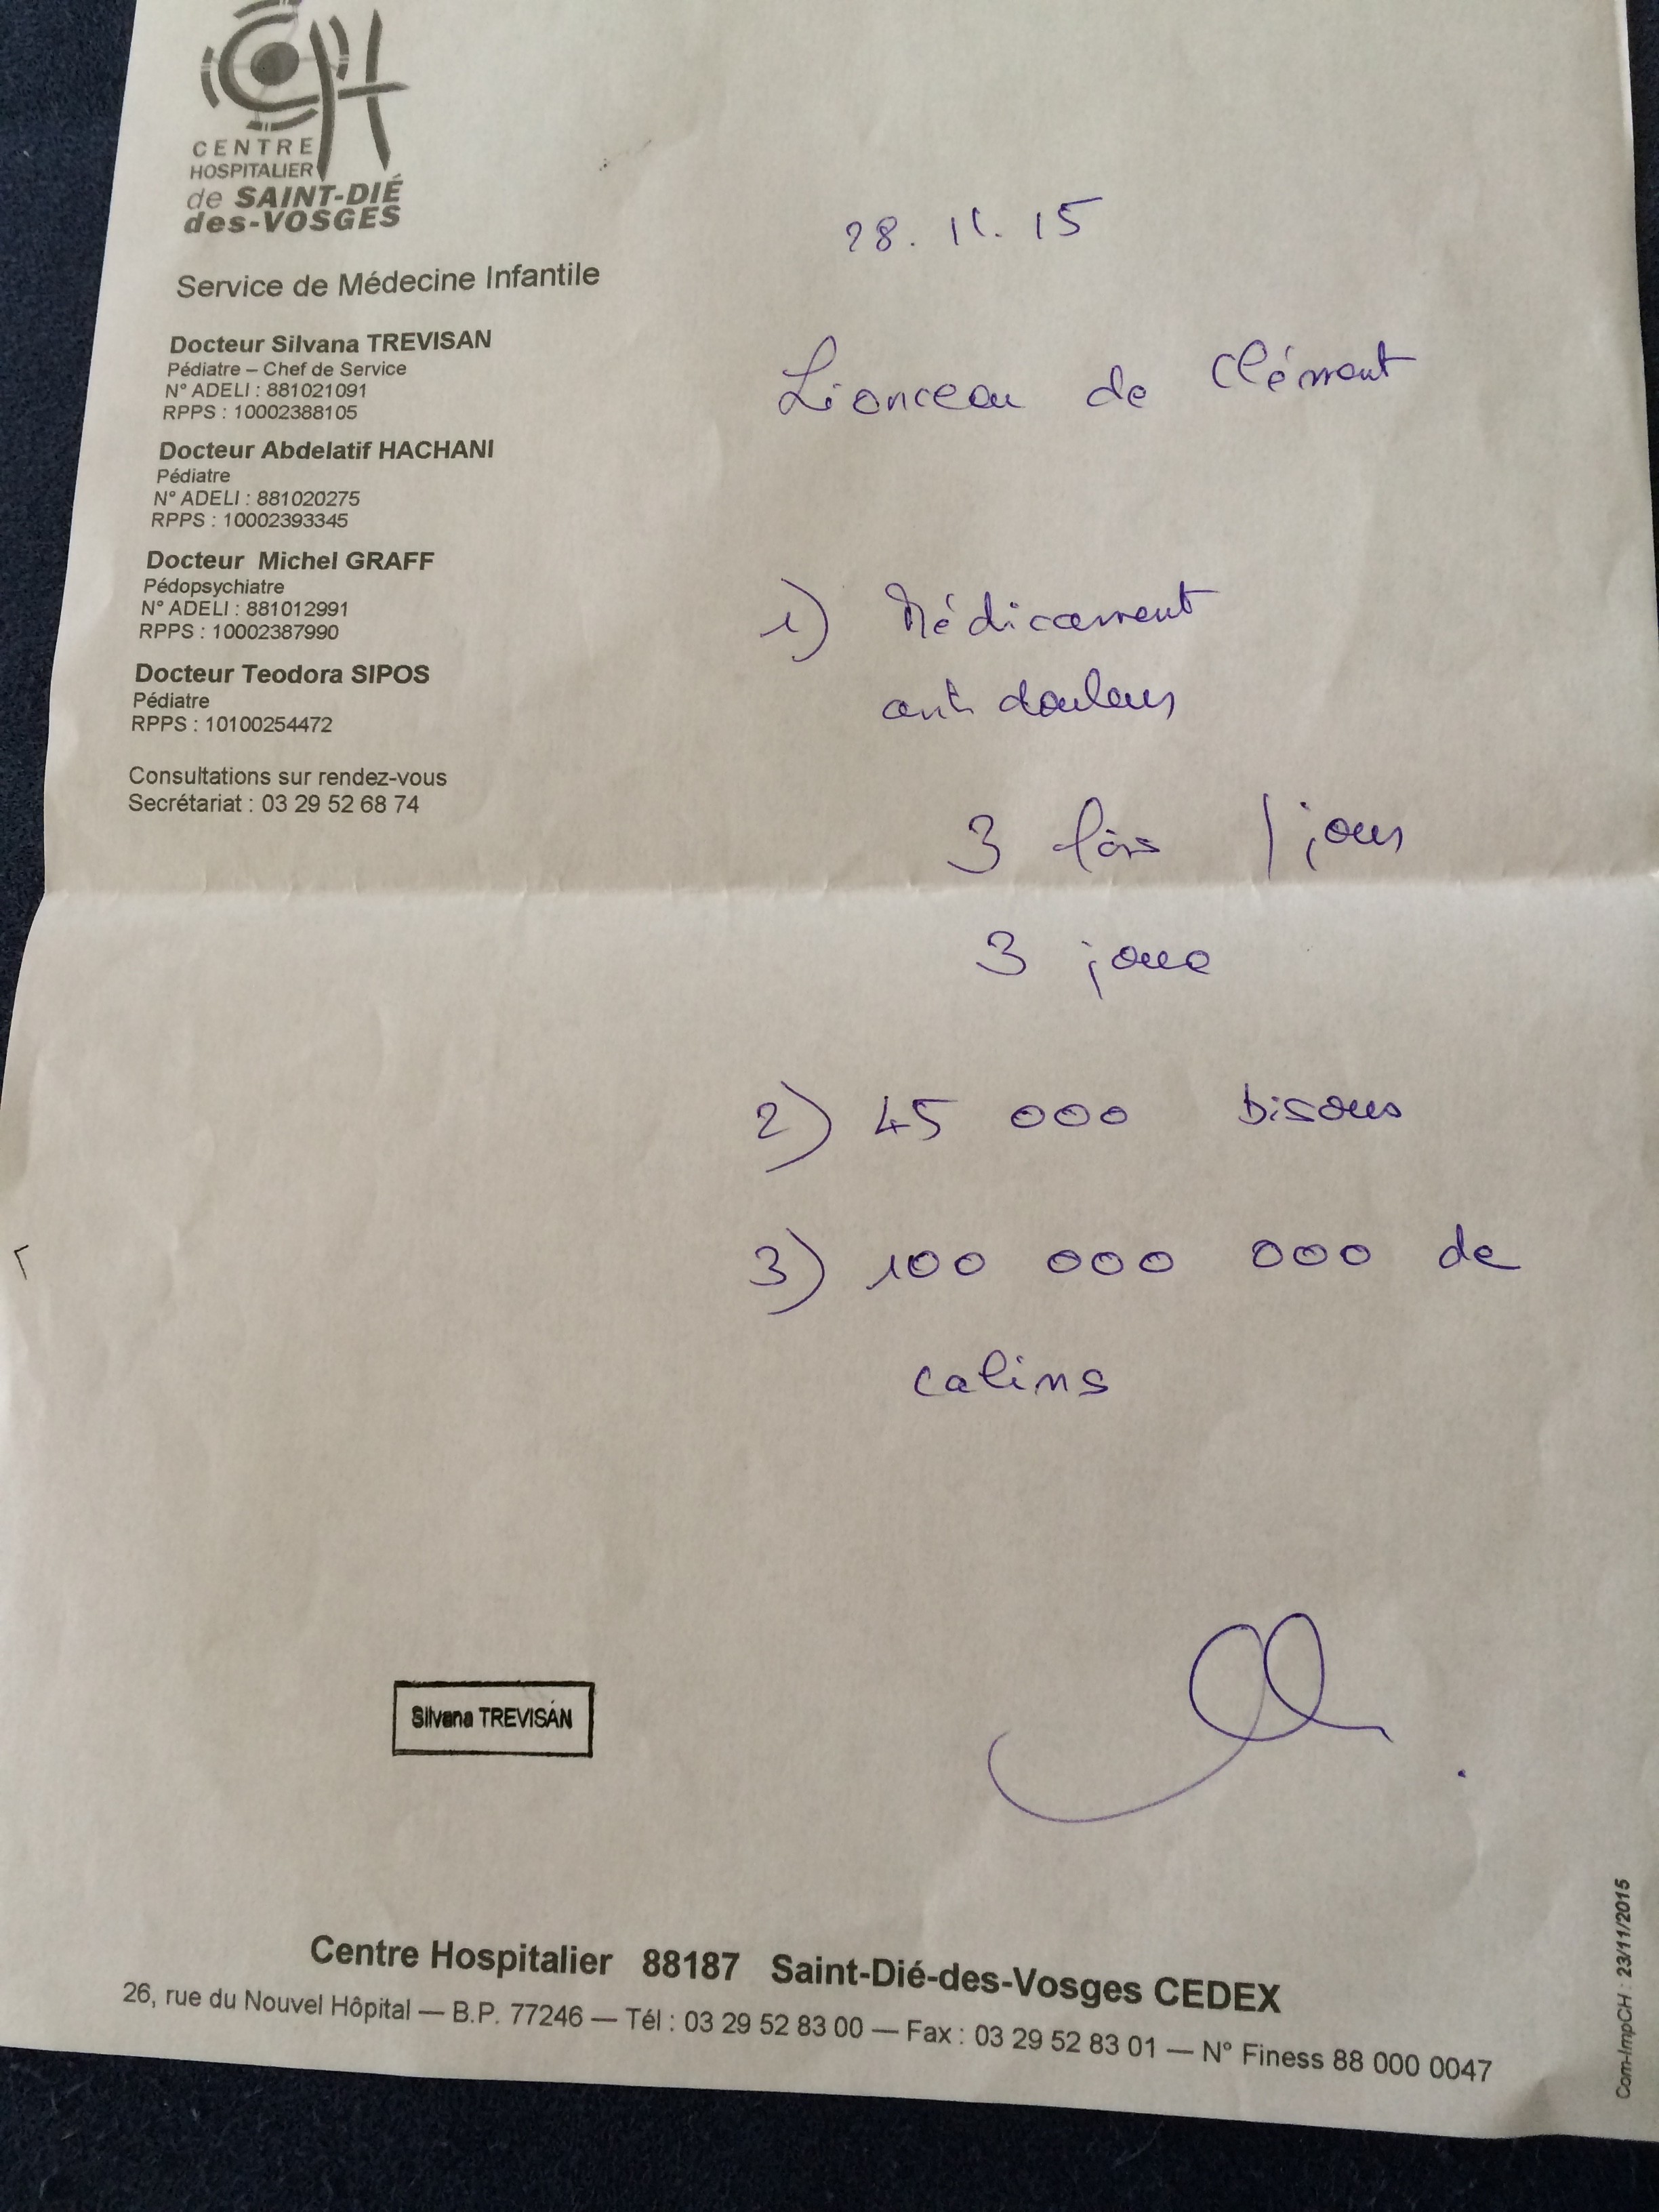 CH
CENTRE
HOSPITALIER
de SAINT-DIÉ
des-VOSGES
Service de Médecine Infantile
Docteur Silvana TREVISAN
Pédiatre – Chef de Service
N° ADELI : 881021091
RPPS : 10002388105
Docteur Abdelatif HACHANI
Pédiatre
N° ADELI : 881020275
RPPS : 10002393345
Docteur Michel GRAFF
Pédopsychiatre
N° ADELI : 881012991
RPPS : 10002387990
Docteur Teodora SIPOS
Pédiatre
RPPS : 10100254472
Consultations sur rendez-vous
Secrétariat : 03 29 52 68 74
28. 11. 15
Lionceau de Clément
1) Médicament
anti douleurs
3 fois / jour
3 jours
2) 45 000 bisous
3) 100 000 000 de
calins
Silvana TREVISAN
Centre Hospitalier 88187 Saint-Dié-des-Vosges CEDEX
26, rue du Nouvel Hôpital — B.P. 77246 — Tél : 03 29 52 83 00 — Fax : 03 29 52 83 01 — N° Finess 88 000 0047
Com-ImpCH : 23/11/2015